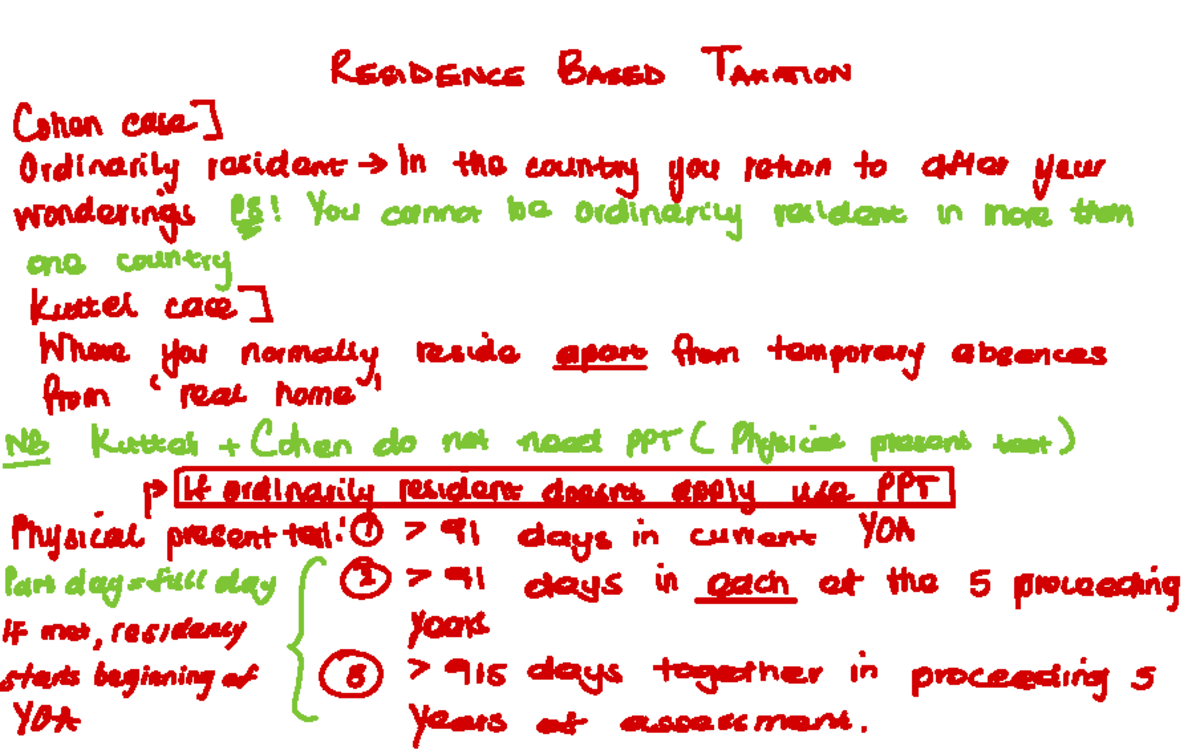 RESIDENCE BASED TAXATION
Cohen case]
Ordinarily resident → In the country you return to after your
wonderings PS! You cannot be ordinarily resident in more than
one country
Kuttel case]
Where you normally reside apart from temporary absences
from 'real home'
NB Kuttel + Cohen do not need PPT ( Physical present test )
→ If ordinarily resident doesnt apply use PPT
Physical present test: ① > 91 days in current YOA
Part day = full day ② > 91 days in each of the 5 proceeding
If met, residency years
starts beginning of ③ > 915 days together in proceeding 5
YOA years of assessment.